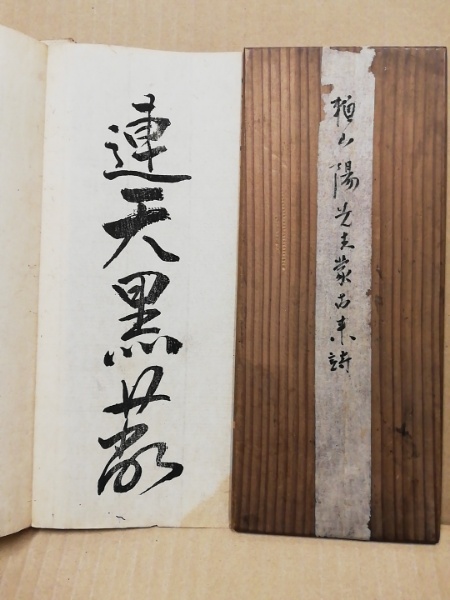 頼山陽先生蒙古来詩
連天黒蔽